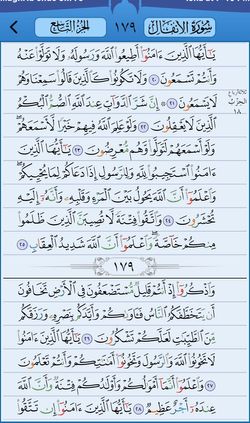 سورة الأنفال ١٧٩ الجزء التاسع
يَـٰٓأَيُّهَا ٱلَّذِينَ ءَامَنُوٓا۟ أَطِيعُوا۟ ٱللَّهَ وَرَسُولَهُۥ وَلَا تَوَلَّوْا۟ عَنْهُ
وَأَنتُمْ تَسْمَعُونَ ٢٠ وَلَا تَكُونُوا۟ كَٱلَّذِينَ قَالُوا۟ سَمِعْنَا وَهُمْ
لَا يَسْمَعُونَ ٢١ ۞ إِنَّ شَرَّ ٱلدَّوَآبِّ عِندَ ٱللَّهِ ٱلصُّمُّ ٱلْبُكْمُ
ٱلَّذِينَ لَا يَعْقِلُونَ ٢٢ وَلَوْ عَلِمَ ٱللَّهُ فِيهِمْ خَيْرًا لَّأَسْمَعَهُمْ
وَلَوْ أَسْمَعَهُمْ لَتَوَلَّوا۟ وَّهُم مُّعْرِضُونَ ٢٣ يَـٰٓأَيُّهَا ٱلَّذِينَ
ءَامَنُوا۟ ٱسْتَجِيبُوا۟ لِلَّهِ وَلِلرَّسُولِ إِذَا دَعَاكُمْ لِمَا يُحْيِيكُمْ
وَٱعْلَمُوٓا۟ أَنَّ ٱللَّهَ يَحُولُ بَيْنَ ٱلْمَرْءِ وَقَلْبِهِۦ وَأَنَّهُۥٓ إِلَيْهِ
تُحْشَرُونَ ٢٤ وَٱتَّقُوا۟ فِتْنَةً لَّا تُصِيبَنَّ ٱلَّذِينَ ظَلَمُوا۟
مِنكُمْ خَآصَّةً وَٱعْلَمُوٓا۟ أَنَّ ٱللَّهَ شَدِيدُ ٱلْعِقَابِ ٢٥
١٧٩
وَٱذْكُرُوٓا۟ إِذْ أَنتُمْ قَلِيلٌ مُّسْتَضْعَفُونَ فِى ٱلْأَرْضِ تَخَافُونَ
أَن يَتَخَطَّفَكُمُ ٱلنَّاسُ فَـَٔاوَىٰكُمْ وَأَيَّدَكُم بِنَصْرِهِۦ وَرَزَقَكُم
مِّنَ ٱلطَّيِّبَـٰتِ لَعَلَّكُمْ تَشْكُرُونَ ٢٦ يَـٰٓأَيُّهَا ٱلَّذِينَ ءَامَنُوا۟
لَا تَخُونُوا۟ ٱللَّهَ وَٱلرَّسُولَ وَتَخُونُوٓا۟ أَمَـٰنَـٰتِكُمْ وَأَنتُمْ تَعْلَمُونَ
٢٧ وَٱعْلَمُوٓا۟ أَنَّمَآ أَمْوَٰلُكُمْ وَأَوْلَـٰدُكُمْ فِتْنَةٌ وَأَنَّ ٱللَّهَ
عِندَهُۥٓ أَجْرٌ عَظِيمٌ ٢٨ يَـٰٓأَيُّهَا ٱلَّذِينَ ءَامَنُوٓا۟ إِن تَتَّقُوا۟